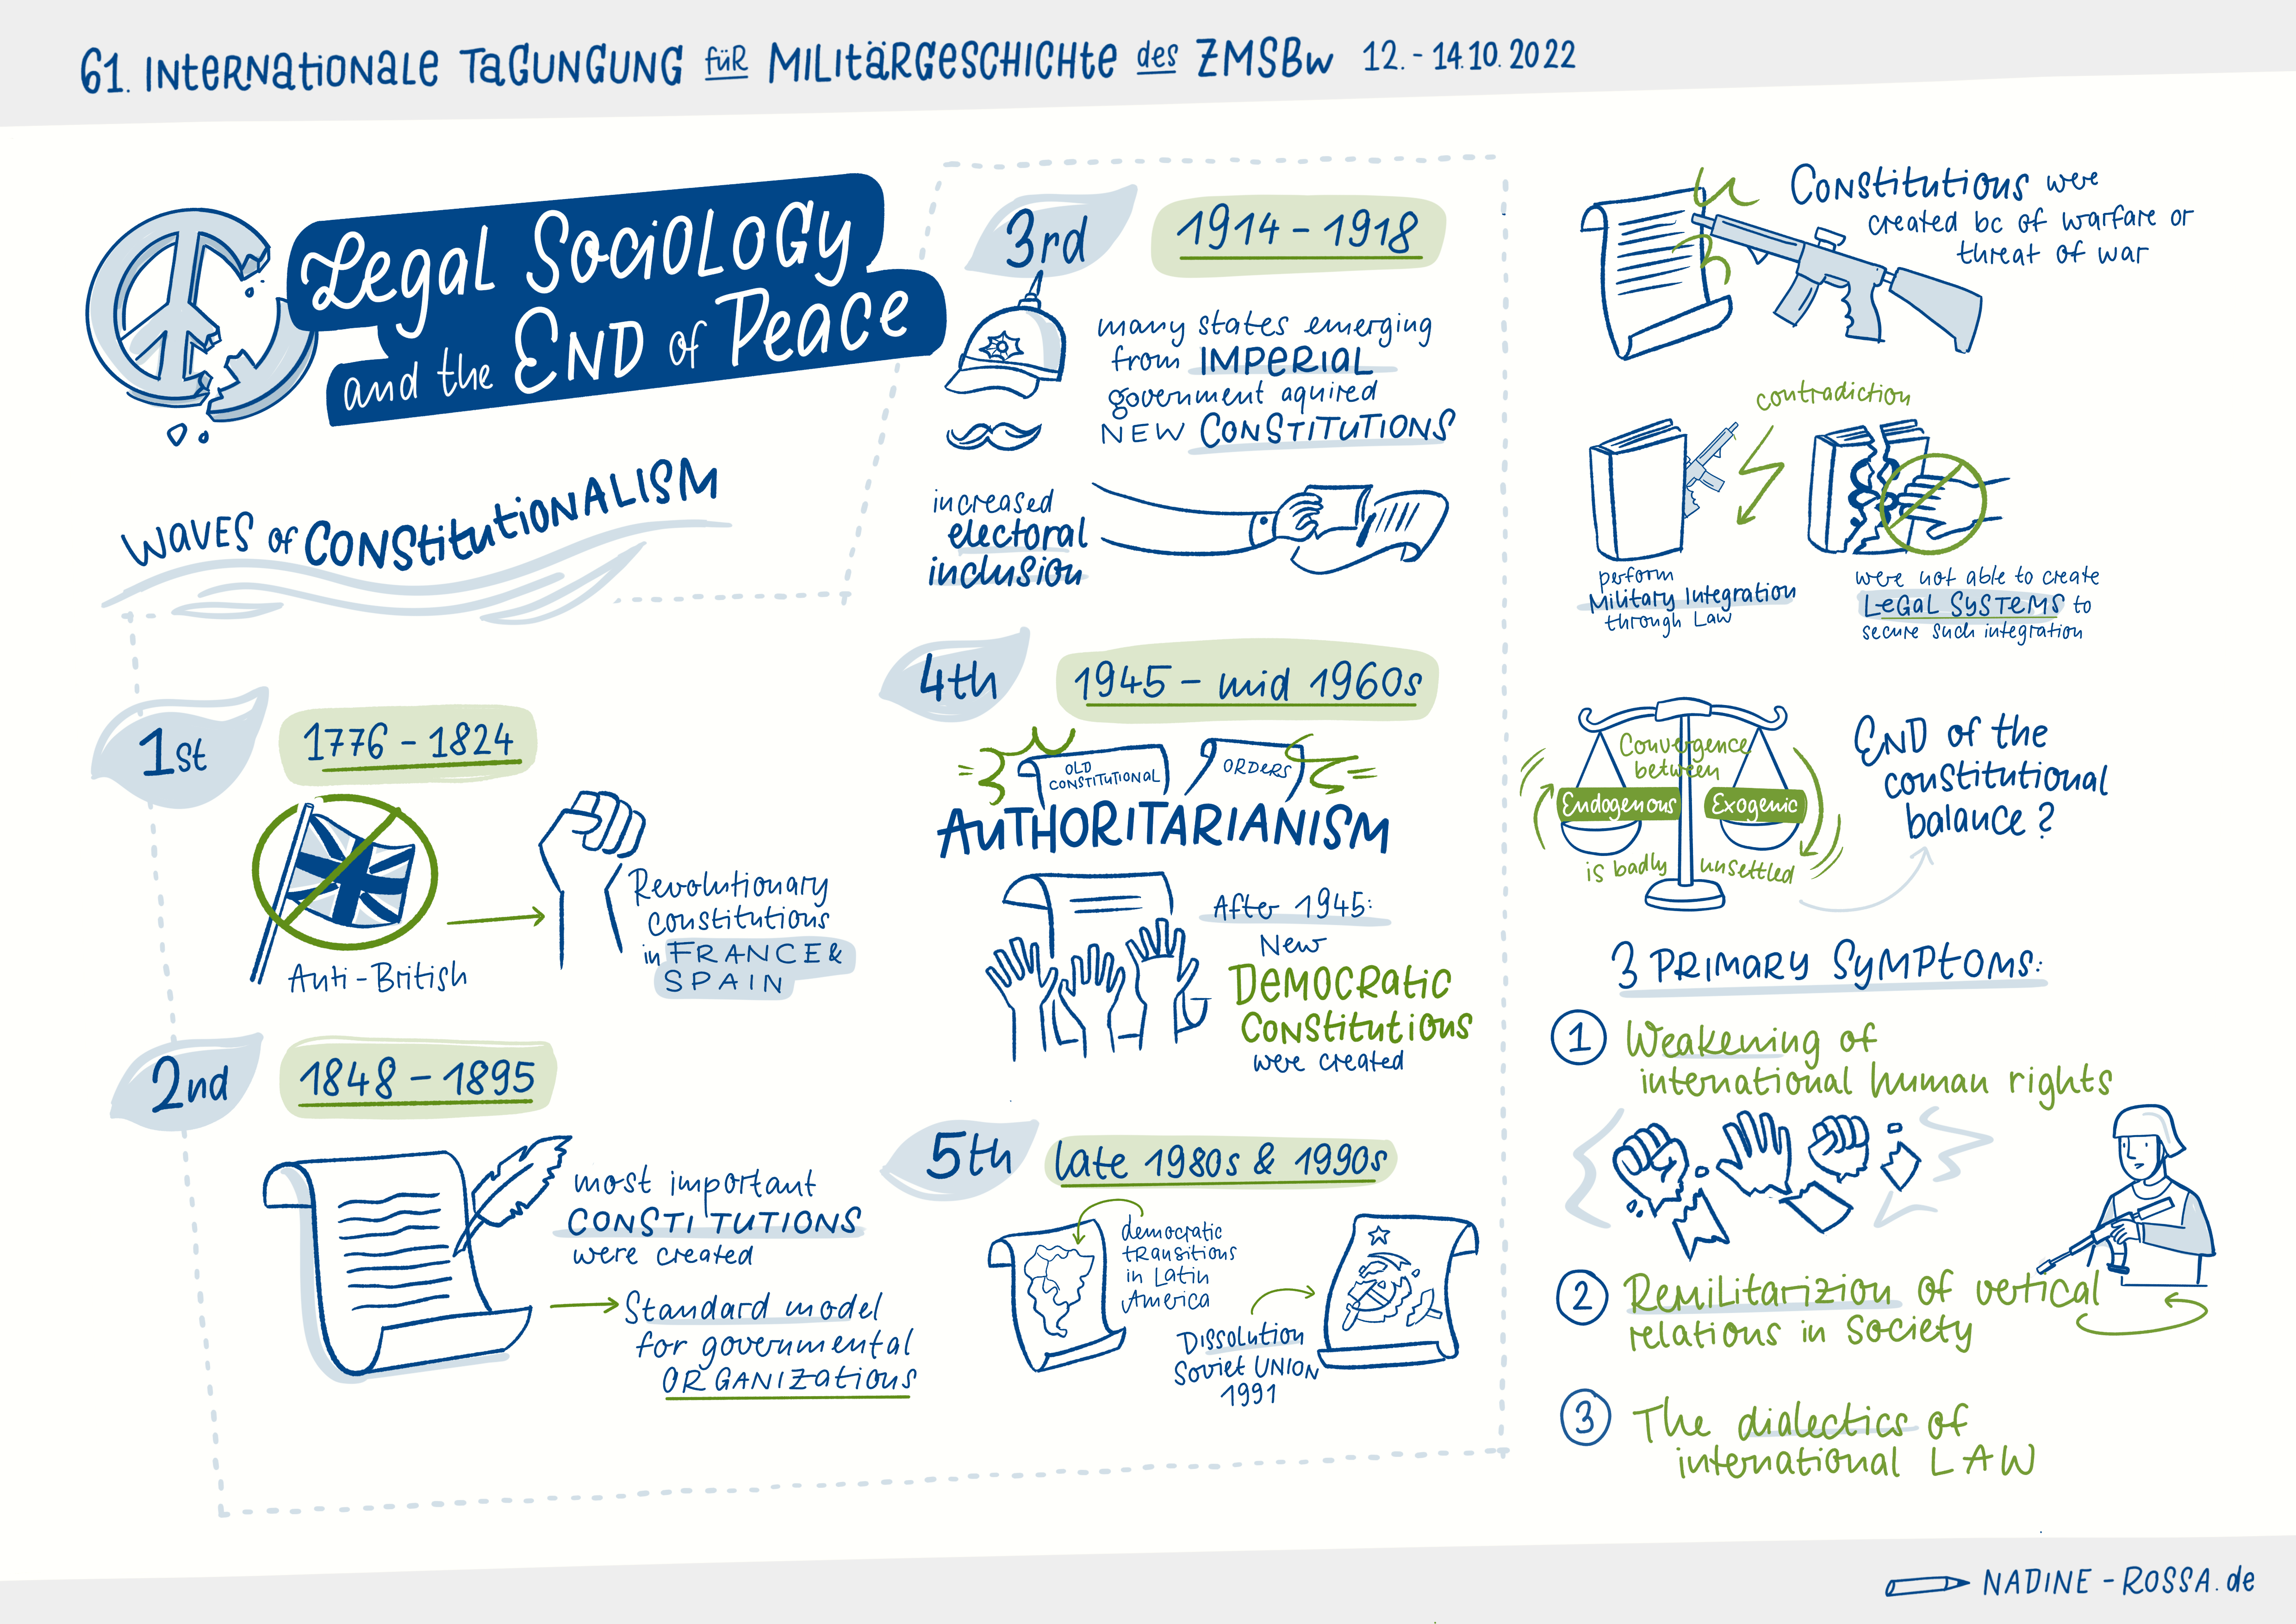 61. Internationale Tagungung für Militärgeschichte des ZMSBw 12. - 14.10.2022
Legal Sociology
and the End of Peace
Waves of Constitutionalism
1st
1776 - 1824
Anti-British
Revolutionary
constitutions
in FRANCE &
SPAIN
2nd
1848 - 1895
most important
CONSTITUTIONS
were created
Standard model
for governmental
ORGANIZations
3rd
1914 - 1918
many states emerging
from IMPERIAL
government aquired
NEW CONSTITUTIONS
increased
electoral
inclusion
4th
1945 - mid 1960s
OLD
CONSTITUTIONAL
ORDERS
AUTHORITARIANISM
After 1945:
New
Democratic
Constitutions
were created
5th
late 1980s & 1990s
democratic
transitions
in Latin
America
Dissolution
Soviet UNION
1991
Constitutions were
created bc of warfare or
threat of war
contradiction
perform
Military Integration
through Law
were not able to create
Legal Systems to
secure such integration
Convergence
between
Endogenous
Exogenic
is badly unsettled
End of the
constitutional
balance?
3 Primary Symptoms:
1 Weakening of
international human rights
2 Remilitarizion of vertical
relations in Society
3 The dialectics of
international LAW
NADINE-ROSSA.de